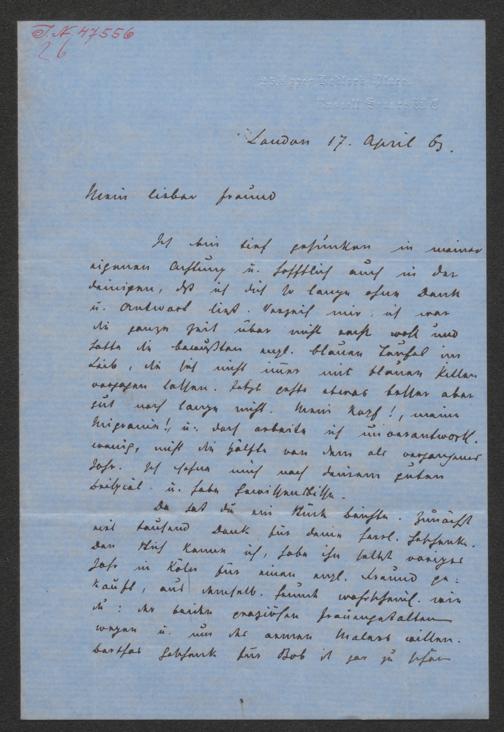 I. N. 47556
26
London 17. April 63.
Mein lieber Freund
Ich bin tief gesunken in meiner
eigenen Achtung u. hoffentlich auch in der
deinigen, daß ich dich so lange ohne Dank
u. Antwort ließ. Verzeih mir, ich war
die ganze Zeit über nicht recht wohl und
hatte die bewußten engl. blauen Teufel im
Leib, die sich nicht immer mit blauen Pillen
verjagen lassen. Jetzt geht's etwas besser aber
gut noch lange nicht. Mein Kopf!, meine
Migraine!, u. doch arbeite ich unverantwortl.
wenig, nicht die Hälfte von dem als vergangenes
Jahr. Ich sehne mich nach deinem guten
Beispiel u. habe Gewissensbisse.
Da hast du ein Stück Beichte. Zunächst
viel tausend Dank für deine Geschenk.
Den Stich kannte ich, habe ihn selbst voriges
Jahr in Köln für einen engl. Freund ge-
kauft, aus demselb. Grunde wahrscheinl. wie
du: der beiden graziösen Frauengestalten
wegen u. um des armen Malers willen.
Berthas Geschenk für Bob ist gar zu schön